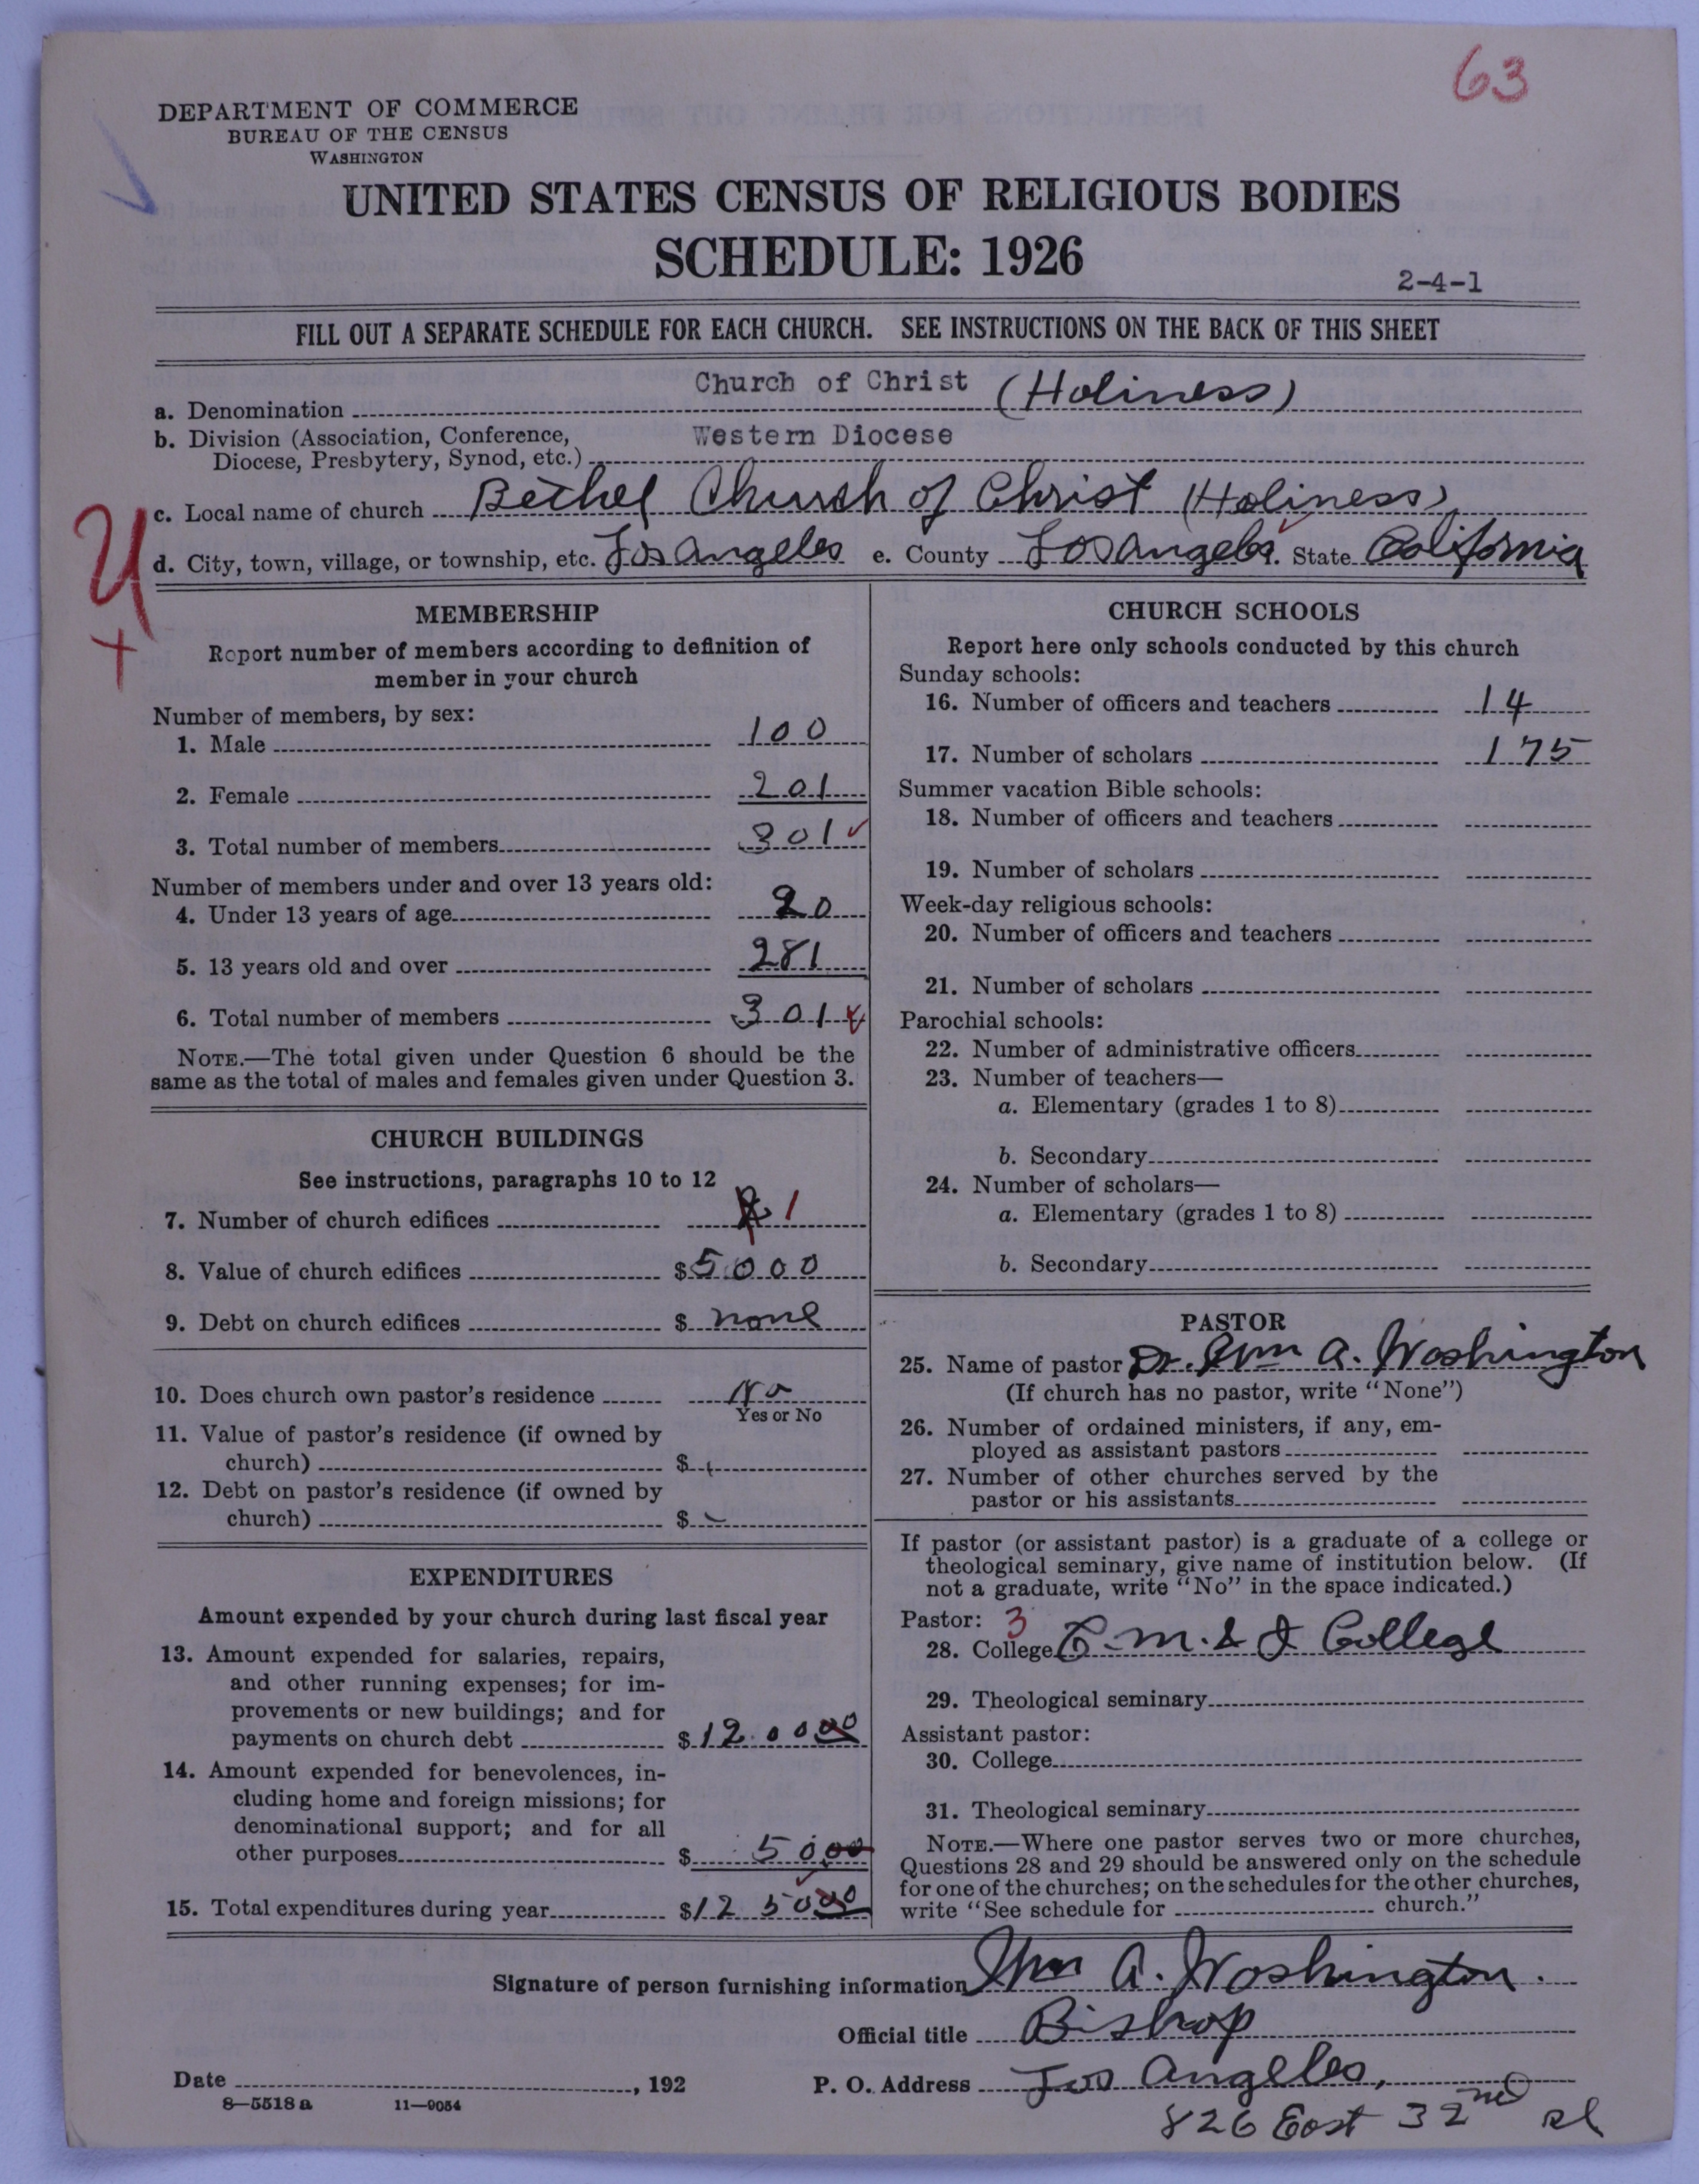 63
DEPARTMENT OF COMMERCE
BUREAU OF THE CENSUS
WASHINGTON
UNITED STATES CENSUS OF RELIGIOUS BODIES
SCHEDULE: 1926
2-4-1
FILL OUT A SEPARATE SCHEDULE FOR EACH CHURCH. SEE INSTRUCTIONS ON THE BACK OF THIS SHEET
a. Denomination Church of Christ (Holiness)
b. Division (Association, Conference, Diocese, Presbytery, Synod, etc.) Western Diocese
c. Local name of church Bethel Church of Christ (Holiness)
d. City, town, village, or township, etc. Los Angeles e. County Los Angeles f. State California
MEMBERSHIP
Report number of members according to definition of
member in your church
Number of members, by sex:
1. Male 100
2. Female 201
3. Total number of members 301
Number of members under and over 13 years old:
4. Under 13 years of age 20
5. 13 years old and over 281
6. Total number of members 301
NOTE.—The total given under Question 6 should be the
same as the total of males and females given under Question 3.
CHURCH BUILDINGS
See instructions, paragraphs 10 to 12
7. Number of church edifices 1
8. Value of church edifices $ 5000
9. Debt on church edifices $ none
10. Does church own pastor's residence No
Yes or No
11. Value of pastor's residence (if owned by
church) $
12. Debt on pastor's residence (if owned by
church) $
EXPENDITURES
Amount expended by your church during last fiscal year
13. Amount expended for salaries, repairs,
and other running expenses; for im-
provements or new buildings; and for
payments on church debt $ 120000
14. Amount expended for benevolences, in-
cluding home and foreign missions; for
denominational support; and for all
other purposes $ 5000
15. Total expenditures during year $ 125000
CHURCH SCHOOLS
Report here only schools conducted by this church
Sunday schools:
16. Number of officers and teachers 14
17. Number of scholars 175
Summer vacation Bible schools:
18. Number of officers and teachers
19. Number of scholars
Week-day religious schools:
20. Number of officers and teachers
21. Number of scholars
Parochial schools:
22. Number of administrative officers
23. Number of teachers—
a. Elementary (grades 1 to 8)
b. Secondary
24. Number of scholars—
a. Elementary (grades 1 to 8)
b. Secondary
PASTOR
25. Name of pastor Dr. Wm A. Washington
(If church has no pastor, write "None")
26. Number of ordained ministers, if any, em-
ployed as assistant pastors
27. Number of other churches served by the
pastor or his assistants
If pastor (or assistant pastor) is a graduate of a college or
theological seminary, give name of institution below. (If
not a graduate, write "No" in the space indicated.)
Pastor: 3
28. College C. M. & I College
29. Theological seminary
Assistant pastor:
30. College
31. Theological seminary
NOTE.—Where one pastor serves two or more churches,
Questions 28 and 29 should be answered only on the schedule
for one of the churches; on the schedules for the other churches,
write "See schedule for church."
Signature of person furnishing information Wm A. Washington.
Official title Bishop
Date , 192 P. O. Address Los Angeles,
8—5518a 11—9054
826 East 32nd St